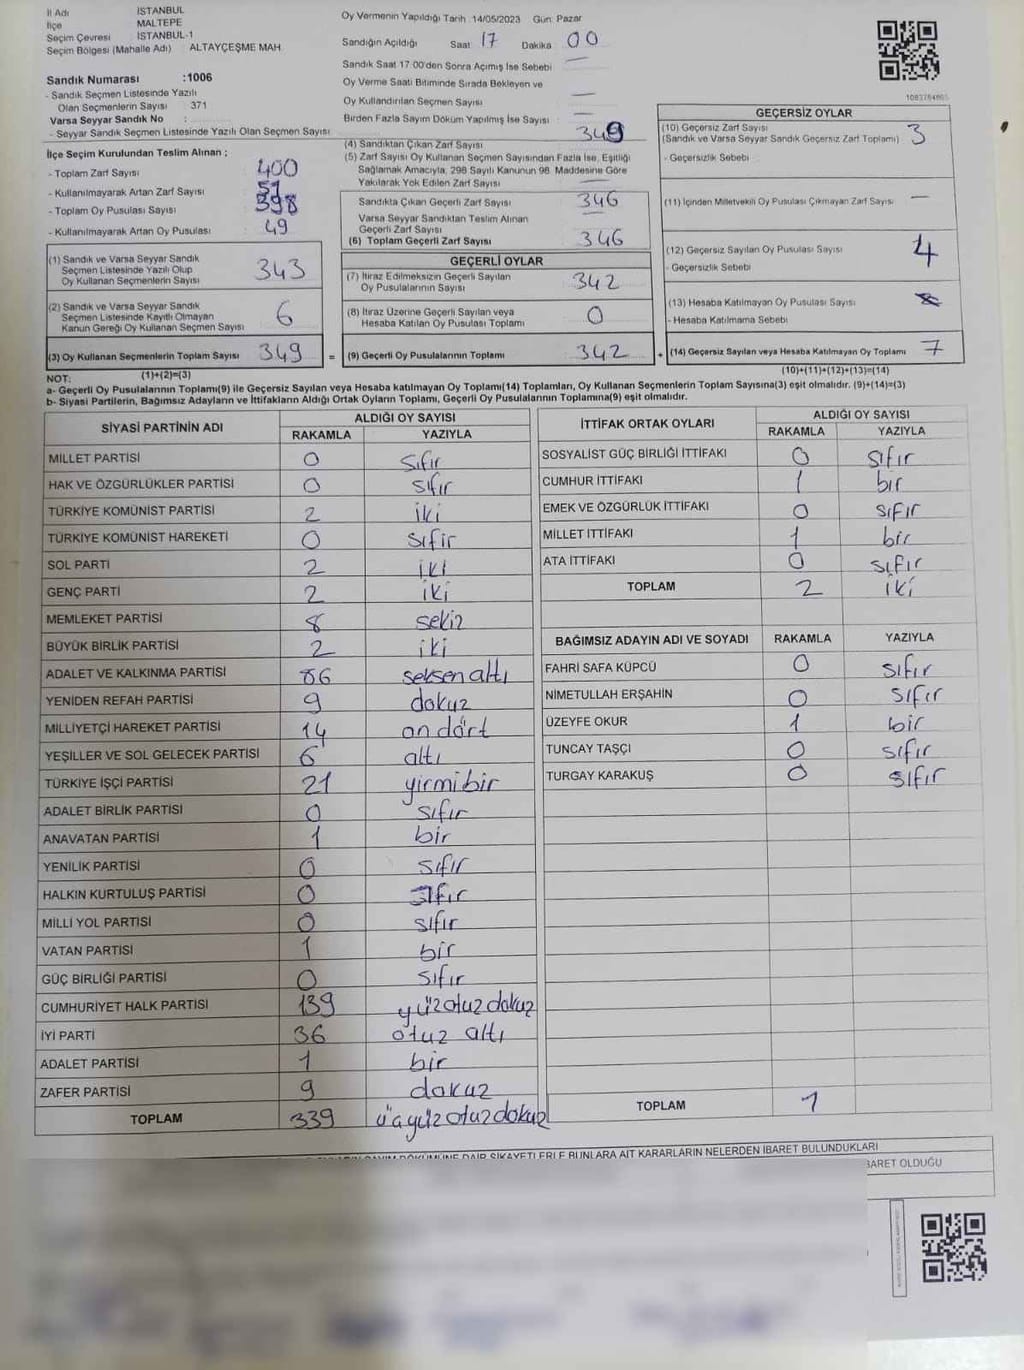 İl Adı İSTANBUL
İlçe MALTEPE
Seçim Çevresi İSTANBUL-1
Seçim Bölgesi (Mahalle Adı) : ALTAYÇEŞME MAH
Sandık Numarası :1006
- Sandık Seçmen Listesinde Yazılı
Olan Seçmenlerin Sayısı : 371
Varsa Seyyar Sandık No :
- Seyyar Sandık Seçmen Listesinde Yazılı Olan Seçmen Sayısı
İlçe Seçim Kurulundan Teslim Alınan ;
- Toplam Zarf Sayısı 400
- Kullanılmayarak Artan Zarf Sayısı 51
- Toplam Oy Pusulası Sayısı 398
- Kullanılmayarak Artan Oy Pusulası 49
(1) Sandık ve Varsa Seyyar Sandık
Seçmen Listesinde Yazılı Olup
Oy Kullanan Seçmenlerin Sayısı 343
(2) Sandık ve Varsa Seyyar Sandık
Seçmen Listesinde Kayıtlı Olmayan
Kanun Gereği Oy Kullanan Seçmen Sayısı 6
(3) Oy Kullanan Seçmenlerin Toplam Sayısı 349 =
(1)+(2)=(3)
Oy Vermenin Yapıldığı Tarih : 14/05/2023 Gün: Pazar
Sandığın Açıldığı Saat 17 Dakika 00
Sandık Saat 17:00'den Sonra Açımış İse Sebebi —
Oy Verme Saati Bitiminde Sırada Bekleyen ve
Oy Kullandırılan Seçmen Sayısı —
Birden Fazla Sayım Döküm Yapılmış İse Sayısı —
(4) Sandıktan Çıkan Zarf Sayısı 349
(5) Zarf Sayısı Oy Kullanan Seçmen Sayısından Fazla İse, Eşitliği
Sağlamak Amacıyla, 298 Sayılı Kanunun 98. Maddesine Göre
Yakılarak Yok Edilen Zarf Sayısı —
Sandıkta Çıkan Geçerli Zarf Sayısı 346
Varsa Seyyar Sandıktan Teslim Alınan
Geçerli Zarf Sayısı —
(6) Toplam Geçerli Zarf Sayısı 346
GEÇERLİ OYLAR
(7) İtiraz Edilmeksizin Geçerli Sayılan
Oy Pusulalarının Sayısı 342
(8) İtiraz Üzerine Geçerli Sayılan veya
Hesaba Katılan Oy Pusulası Toplamı 0
(9) Geçerli Oy Pusulalarının Toplamı 342 +
GEÇERSİZ OYLAR
(10) Geçersiz Zarf Sayısı
(Sandık ve Varsa Seyyar Sandık Geçersiz Zarf Toplamı) 3
- Geçersizlik Sebebi
(11) İçinden Milletvekili Oy Pusulası Çıkmayan Zarf Sayısı —
(12) Geçersiz Sayılan Oy Pusulası Sayısı 4
- Geçersizlik Sebebi
(13) Hesaba Katılmayan Oy Pusulası Sayısı
- Hesaba Katılmama Sebebi
(14) Geçersiz Sayılan veya Hesaba Katılmayan Oy Toplamı 7
(10)+(11)+(12)+(13)=(14)
NOT:
a- Geçerli Oy Pusulalarının Toplamı(9) ile Geçersiz Sayılan veya Hesaba katılmayan Oy Toplamı(14) Toplamları, Oy Kullanan Seçmenlerin Toplam Sayısına(3) eşit olmalıdır. (9)+(14)=(3)
b- Siyasi Partilerin, Bağımsız Adayların ve İttifakların Aldığı Ortak Oyların Toplamı, Geçerli Oy Pusulalarının Toplamına(9) eşit olmalıdır.
SİYASİ PARTİNİN ADI ALDIĞI OY SAYISI
RAKAMLA YAZIYLA
MİLLET PARTİSİ 0 sıfır
HAK VE ÖZGÜRLÜKLER PARTİSİ 0 sıfır
TÜRKİYE KOMÜNİST PARTİSİ 2 iki
TÜRKİYE KOMÜNİST HAREKETİ 0 sıfır
SOL PARTİ 2 iki
GENÇ PARTİ 2 iki
MEMLEKET PARTİSİ 8 sekiz
BÜYÜK BİRLİK PARTİSİ 2 iki
ADALET VE KALKINMA PARTİSİ 86 seksen altı
YENİDEN REFAH PARTİSİ 9 dokuz
MİLLİYETÇİ HAREKET PARTİSİ 14 on dört
YEŞİLLER VE SOL GELECEK PARTİSİ 6 altı
TÜRKİYE İŞÇİ PARTİSİ 21 yirmi bir
ADALET BİRLİK PARTİSİ 0 sıfır
ANAVATAN PARTİSİ 1 bir
YENİLİK PARTİSİ 0 sıfır
HALKIN KURTULUŞ PARTİSİ 0 sıfır
MİLLİ YOL PARTİSİ 0 sıfır
VATAN PARTİSİ 1 bir
GÜÇ BİRLİĞİ PARTİSİ 0 sıfır
CUMHURİYET HALK PARTİSİ 139 yüz otuz dokuz
İYİ PARTİ 36 otuz altı
ADALET PARTİSİ 1 bir
ZAFER PARTİSİ 9 dokuz
TOPLAM 339 üç yüz otuz dokuz
İTTİFAK ORTAK OYLARI ALDIĞI OY SAYISI
RAKAMLA YAZIYLA
SOSYALİST GÜÇ BİRLİĞİ İTTİFAKI 0 sıfır
CUMHUR İTTİFAKI 1 bir
EMEK VE ÖZGÜRLÜK İTTİFAKI 0 sıfır
MİLLET İTTİFAKI 1 bir
ATA İTTİFAKI 0 sıfır
TOPLAM 2 iki
BAĞIMSIZ ADAYIN ADI VE SOYADI RAKAMLA YAZIYLA
FAHRİ SAFA KÜPCÜ 0 sıfır
NİMETULLAH ERŞAHİN 0 sıfır
ÜZEYFE OKUR 1 bir
TUNCAY TAŞÇI 0 sıfır
TURGAY KARAKUŞ 0 sıfır
TOPLAM 1
DÖKÜMÜNE DAİR ŞİKAYETLERLE BUNLARA AİT KARARLARIN NELERDEN İBARET BULUNDUKLARI
BARET OLDUĞU